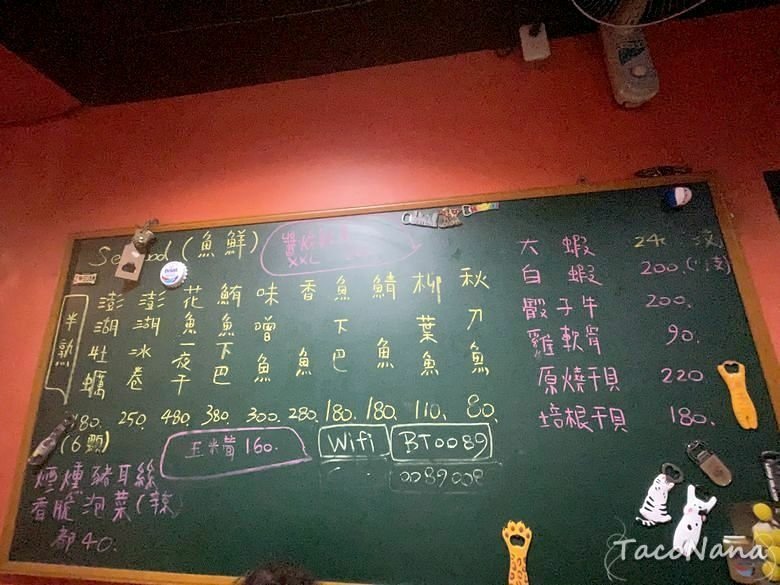 Seafood (魚鮮)
XXL
半熟
秋刀魚 80.
柳葉魚 110.
鯖魚 180.
魚下巴 180.
香魚 280.
味噌魚 300.
鮪魚下巴 380.
花魚一夜干 480.
澎湖冰卷 250.
澎湖牡蠣 180. (6顆)
玉米筍 160.
Wifi
BT0089
煙燻豬耳絲
香脆泡菜(辣)
都40.
大蝦
白蝦 200.
骰子牛 200.
雞軟骨 90.
原燒干貝 220
培根干貝 180.
TacoNana